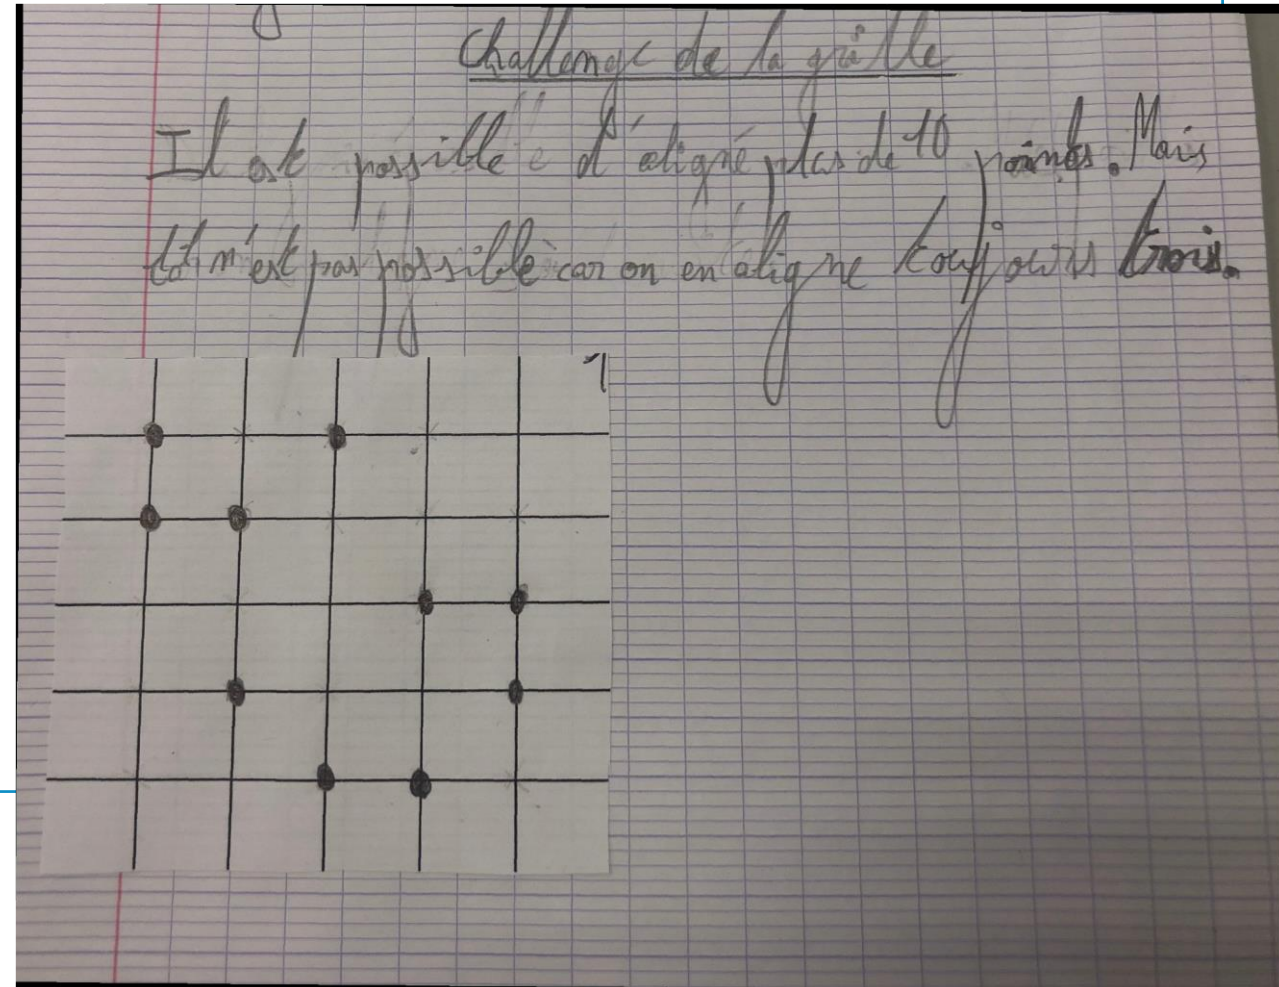 Challenge de la grille
Il est possible d'aligné plus de 10 points. Mais
n'est pas possible car on en aligne toujours trois.
1